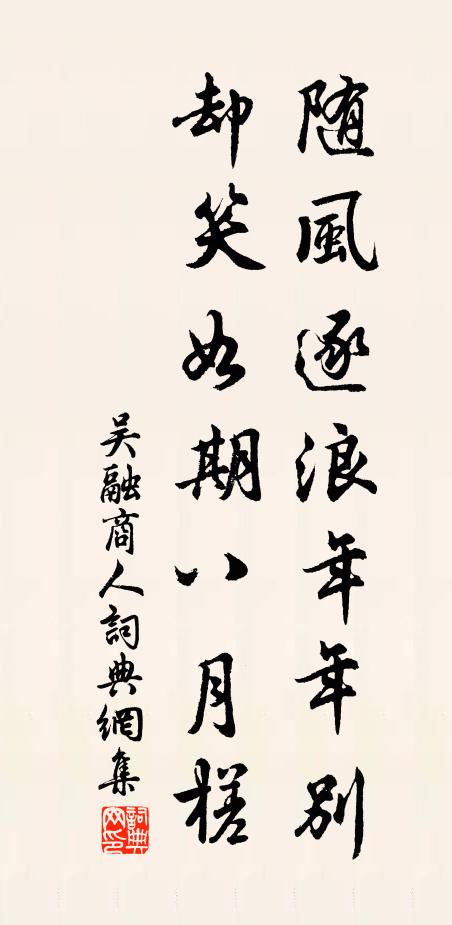 随風逐浪年年別
却笑如期八月槎
吳融商人詞典網集
詞典网印